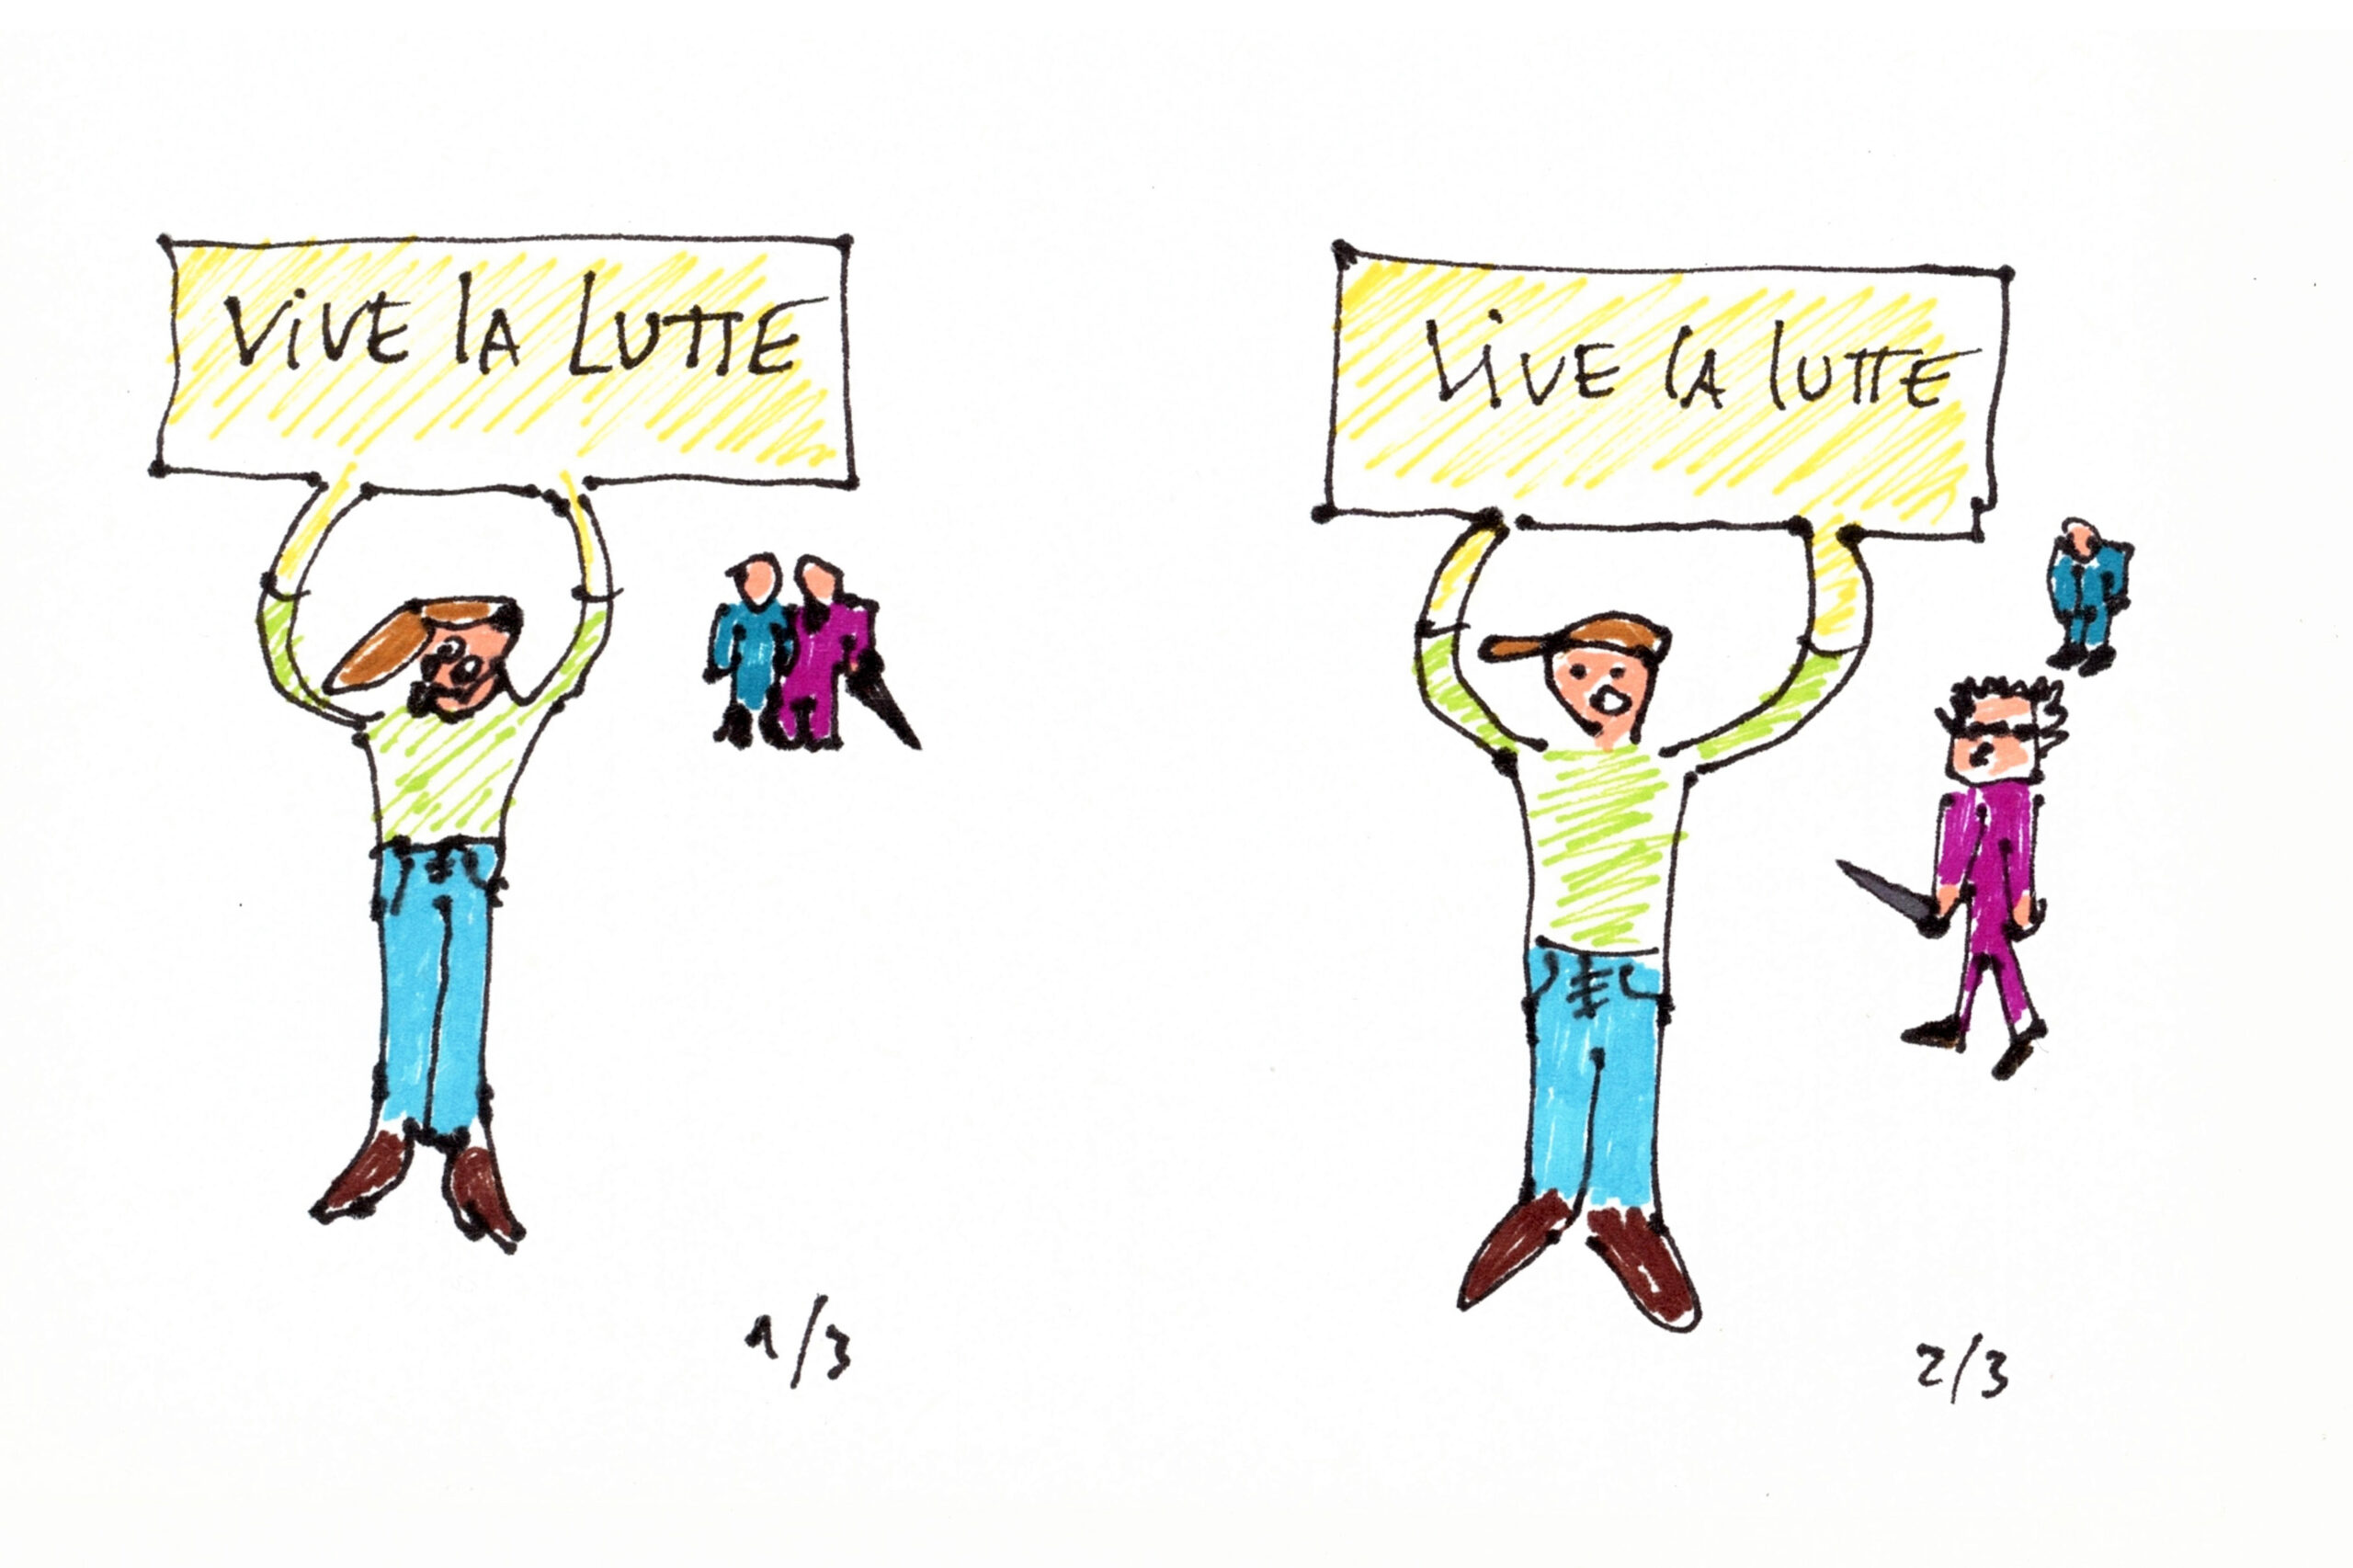 VIVE LA LUTTE
LIVE LA LUTTE
1/3
2/3